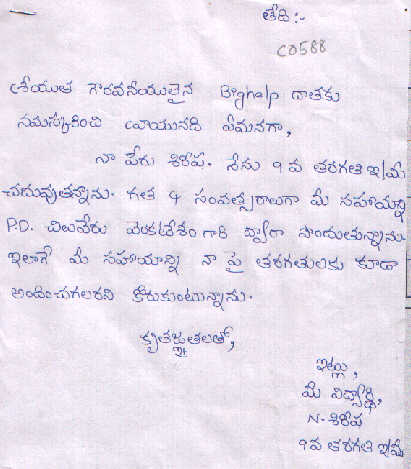 తేది:-
C0588
శ్రీయుత గౌరవనీయులైన Bighelp దాతకు
నమస్కరించి వ్రాయునది ఏమనగా,
నా పేరు శిరీష. నేను 9 వ తరగతి ఇ/మీ
చదువుతున్నాను. గత 4 సంవత్సరాలుగా మీ సహాయాన్ని
P.D. చిలువేరు వెంకటేశం గారి ద్వారా పొందుతున్నాను.
ఇలాగే మీ సహాయాన్ని నా పై తరగతులకు కూడా
అందించగలరని కోరుకుంటున్నాను.
కృతజ్ఞతలతో,
ఇట్లు,
మీ విద్యార్థి,
N. శిరీష
9 వ తరగతి ఇ/మీ